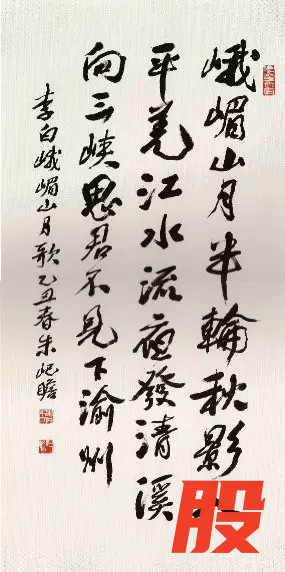 峨嵋山月半輪秋影
平羌江水流夜發清溪
向三峽思君不見下渝州
李白峨嵋山月歌乙丑春朱屺瞻
股